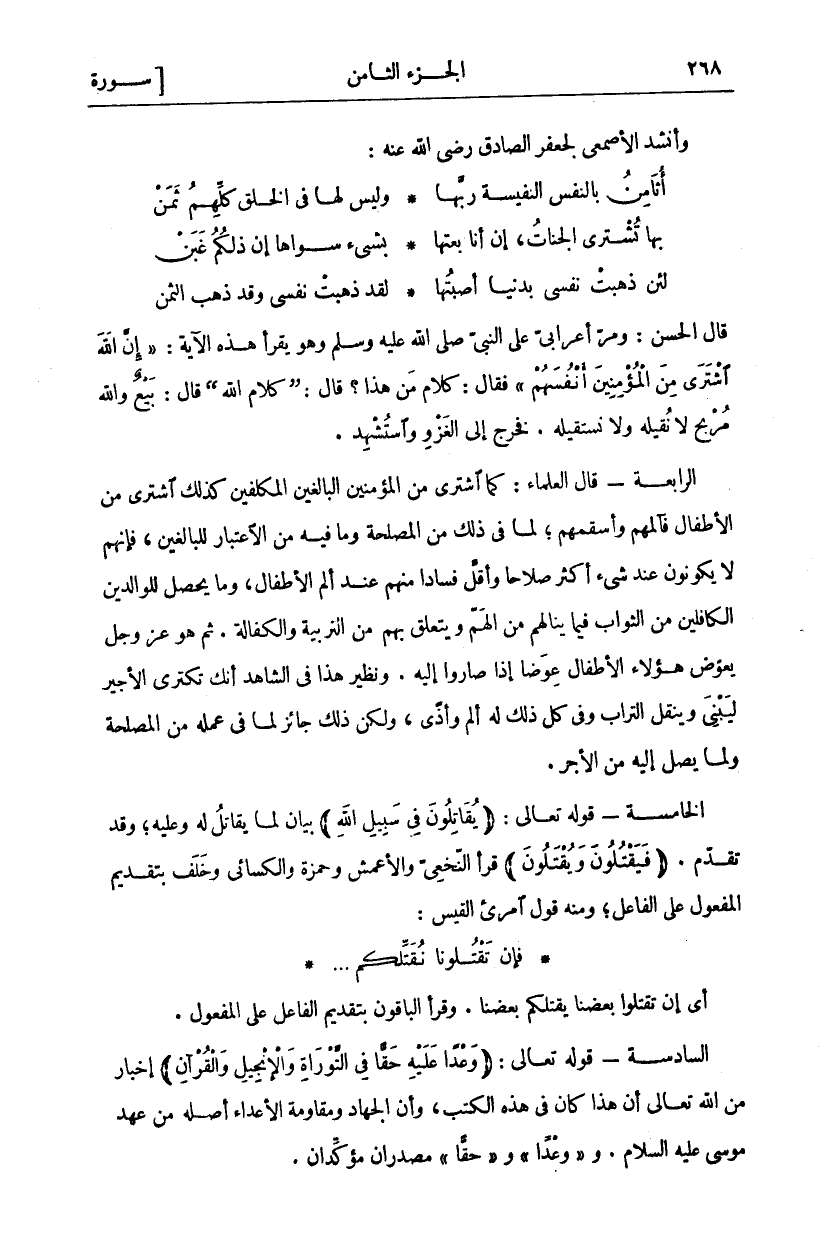 ٢٦٨ الجـزء الثـامن [ ســورة
وأنشد الأصمعى لجعفر الصادق رضى الله عنه :
أُثَامِنُ بالنفس النفيسـة ربَّهـا * وليس لهـا فى الخلق كلِّهِمُ ثَمَنْ
بها تُشْترى الجناتُ، إن أنا بعتها * بشىء ســواها إن ذلكُمُ غَبَنْ
لئن ذهبتْ نفسى بدنيـا أصبتُها * لقد ذهبتْ نفسى وقد ذهب الثمن
قال الحسن : ومرّ أعرابىّ على النبىّ صلى الله عليه وسـلم وهو يقرأ هـذه الآية : « إِنَّ اللهَ
ٱشْتَرَى مِنَ الْمُؤْمِنِينَ أَنْفُسَهُمْ » فقال : كلام مَن هذا ؟ قال : ”كلام الله“ قال : بَيْعٌ والله
مُرْبِح لا نُقيله ولا نستقيله . فخرج إلى الغَزْوِ وٱستُشْهِد .
الرابعـــة — قال العلماء : كما ٱشترى من المؤمنين البالغين المكلفين كذلك ٱشترى من
الأطفال فآلمهم وأسقمهم ؛ لمـا فى ذلك من المصلحة وما فيـه من الٱعتبار للبالغين ، فإنهم
لا يكونون عند شىء أكثر صلاحا وأقلَّ فسادا منهم عنـد ألم الأطفال، وما يحصل للوالدين
الكافلين من الثواب فيما ينالهم من الهَمّ ويتعلق بهم من التربية والكفالة . ثم هو عز وجل
يعوّض هـؤلاء الأطفال عِوَضا إذا صاروا إليه . ونظير هذا فى الشاهد أنك تكترى الأجير
لِيَبْنِىَ وينقل التراب وفى كل ذلك له ألم وأذًى ، ولكن ذلك جائز لمـا فى عمله من المصلحة
ولمـا يصل إليه من الأجر .
الخامســة — قوله تعـالى : ﴿ يُقَاتِلُونَ فِى سَبِيلِ اللهِ ﴾ بيان لمـا يقاتلُ له وعليه؛ وقد
تقـدّم . ﴿ فَيَقْتُلُونَ وَيُقْتَلُونَ ﴾ قرأ النَّخَعِىّ والأعمش وحمزة والكسائى وخَلَف بتقـديم
المفعول على الفاعل؛ ومنه قول ٱمرئ القيس :
* فإن تَقْتُـلونا نُقَتِّلكـم ... *
أى إن تقتلوا بعضنا يقتلكم بعضنا . وقرأ الباقون بتقديم الفاعل على المفعول .
السادســة — قوله تعـالى : ﴿ وَعْدًا عَلَيْهِ حَقًّا فِى التَّوْرَاةِ وَالْإِنْجِيلِ وَالْقُرْآنِ ﴾ إخبار
من الله تعـالى أن هذا كان فى هذه الكتب، وأن الجهاد ومقاومة الأعداء أصـله من عهد
موسى عليه السلام . و « وعْدًا » و « حقًّا » مصدران مؤكِّدان .